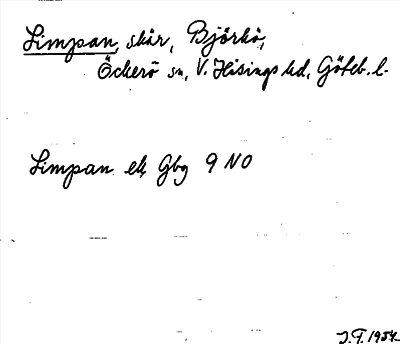 Limpan, skär, Björkö,
Öckerö sn, V. Hisings hd, Göteb. l.
Limpan ek Gbg 9 NO
J.F. 1954